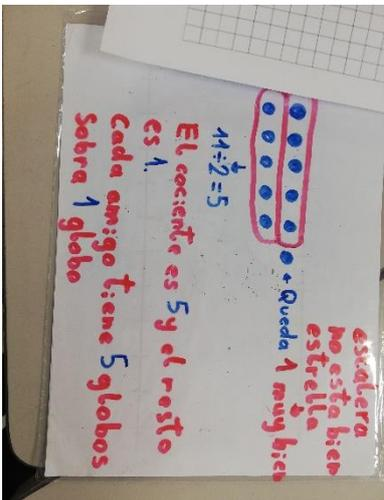 escalera
no esta bien
estrella
← Queda 1 muy bien
11÷2=5
El cociente es 5 y el resto
es 1.
Cada amigo tiene 5 globos
Sobra 1 globo